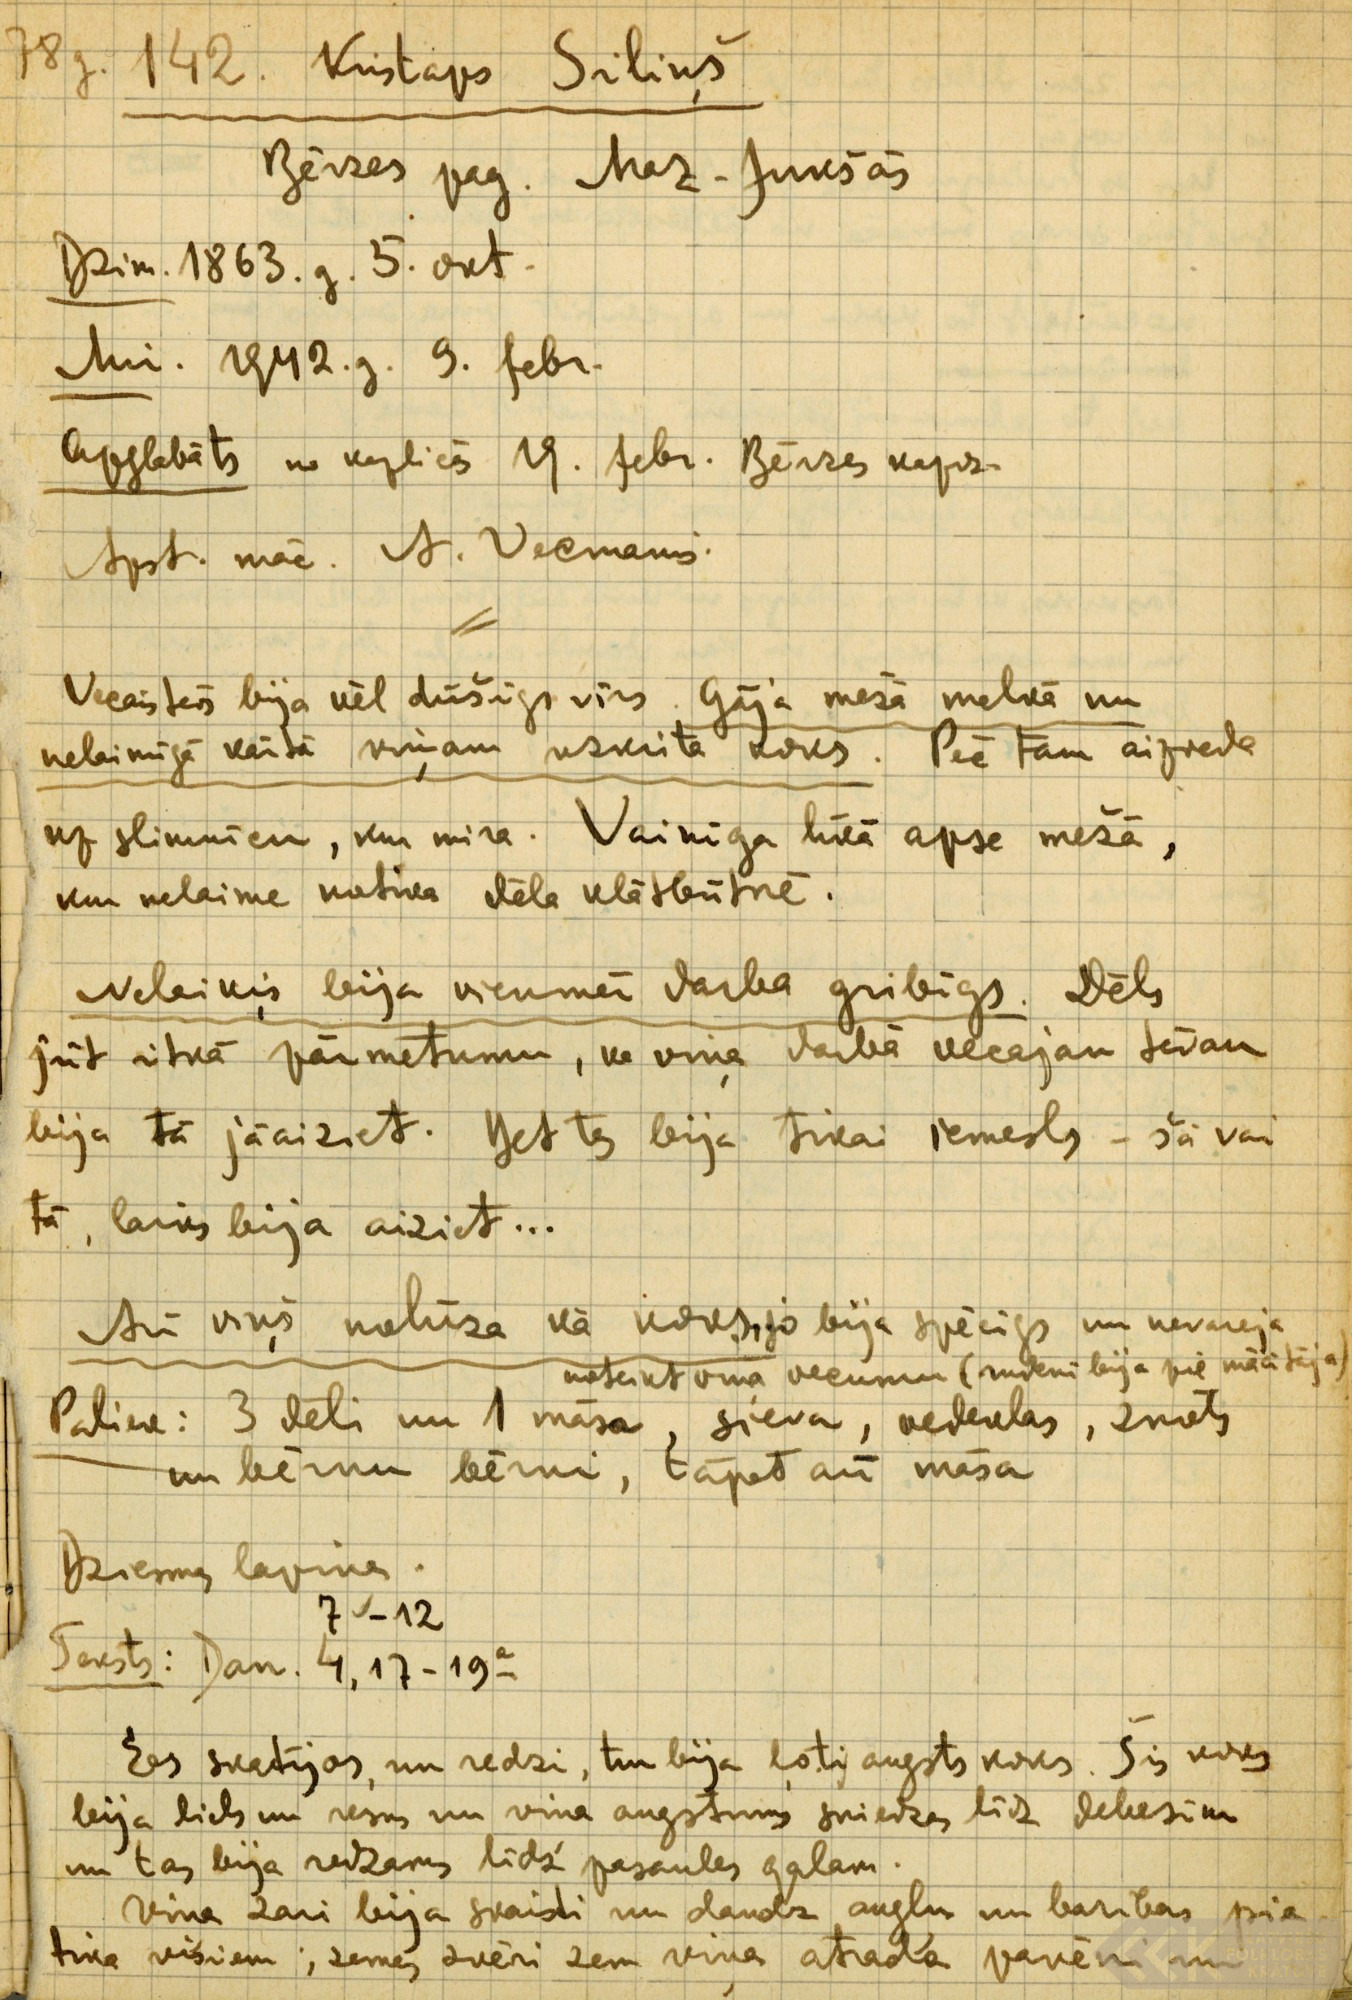 78 g. 142. Kristaps Siliņš
Bērzes pag. Maz-Jukšās
Dzim. 1863. g. 5. okt.
Mir. 1942. g. 9. febr.
Apglabāts no kaplicās 19. febr. Bērzes kapos
Apst. māc. A. Vecmanis.
Vecaistēvs bija vēl dūšīgs vīrs. Gāja mežā malkā un
nelaimīgā kārtā viņam uzkrita koks. Pēc tam aizveda
uz slimnīcu, kur mira. Vainīga līkā apse mežā,
kur nelaime notika dēla klātbūtnē.
Nelaiķis bija vienmēr darba gribīgs. Dēls
jūt itkā pārmetumu, ka viņa darbā vecajam tēvam
bija tā jāaiziet. Bet tas bija tikai iemesls - šā vai
tā, laiks bija aiziet...
Arī viņš nolūza kā koks, jo bija spēcīgs un nevarēja
noteikt viņa vecumu (rudenī bija pie mācītāja)
Paliek: 3 dēli un 1 māsa, sieva, vedeklas, znots
un bērnu bērni, tāpat arī māsa
Dziesmas lapiņa.
7 - 12
Teksts: Dan. 4, 17 - 19a
Es skatījos, un redzi, tur bija ļoti augsts koks. Šis koks
bija liels un resns un viņa augstums sniedzās līdz debesīm
un tas bija redzams līdz pasaules galam.
Viņa zari bija skaisti un daudz augļu un barības pie-
tika visiem; zemes zvēri zem viņa atrada pavēni un